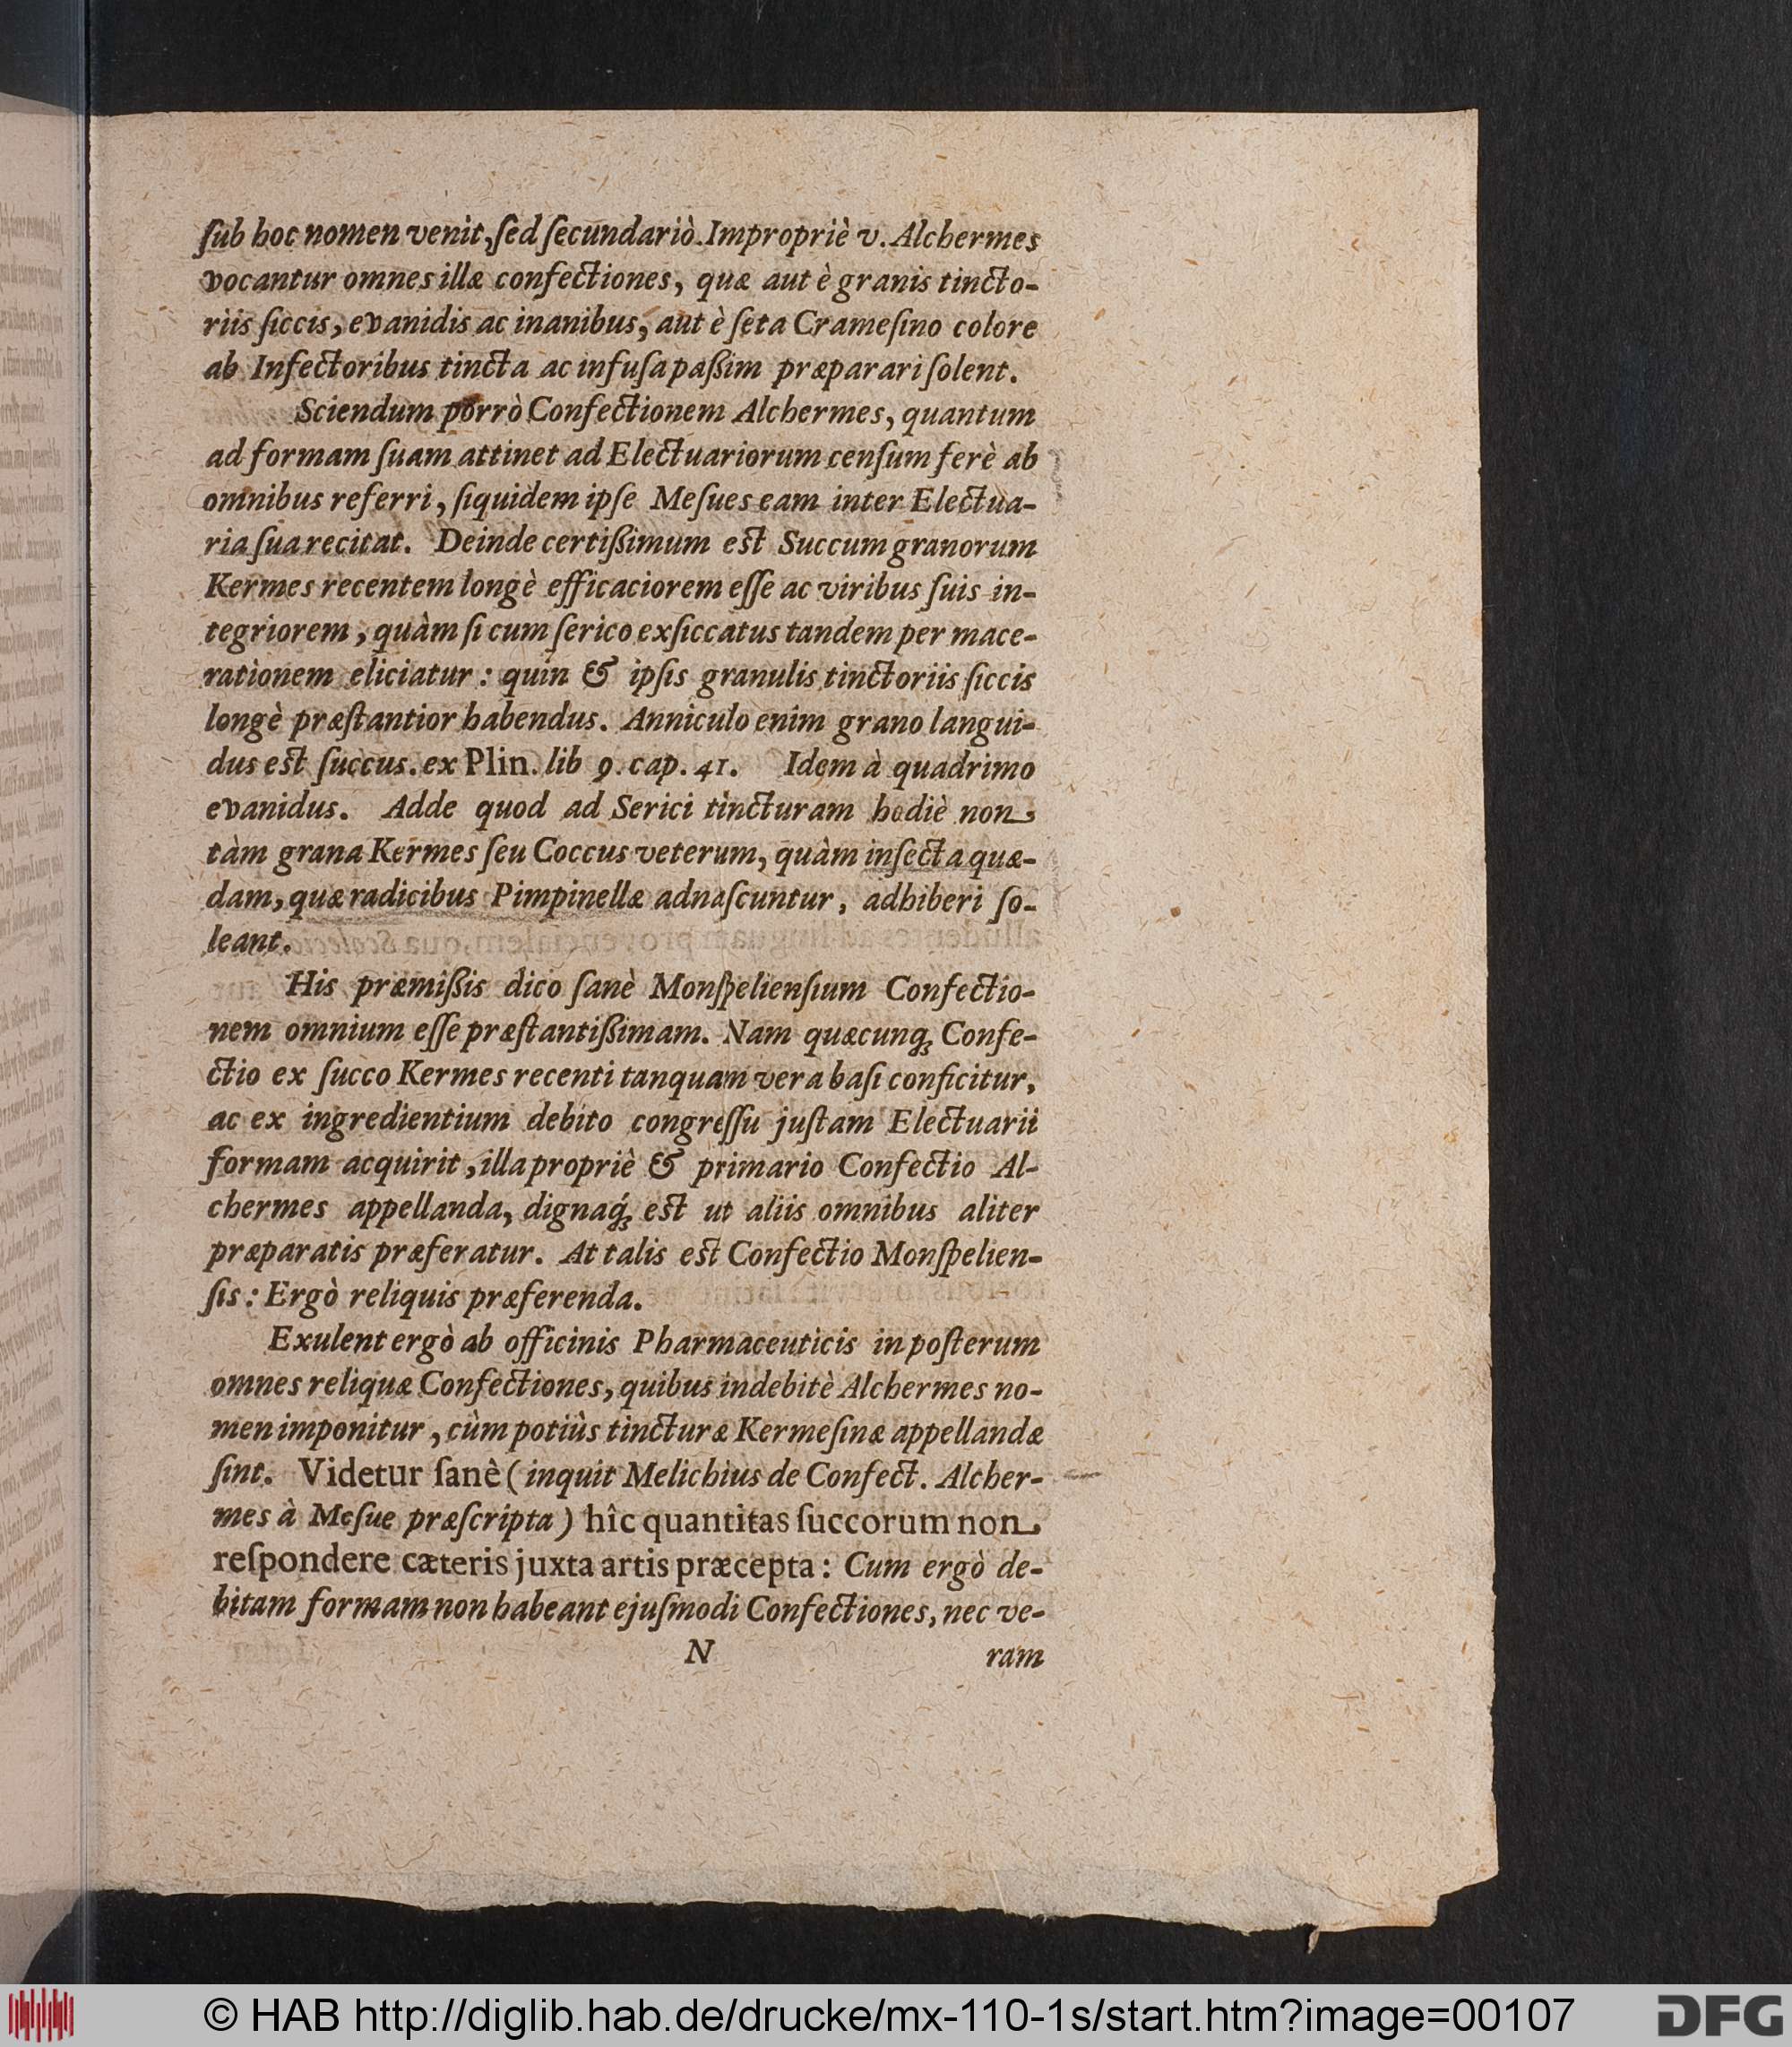 ſub hoc nomen venit, ſed ſecundariò. Impropriè v. Alchermes
vocantur omnes illæ confectiones, quæ aut è granis tincto-
riis ſiccis, evanidis ac inanibus, aut è ſeta Crameſino colore
ab Infectoribus tincta ac infuſa paßim præparari ſolent.
Sciendum porrò Confectionem Alchermes, quantum
ad formam ſuam attinet ad Electuariorum cenſum ferè ab
omnibus referri, ſiquidem ipſe Meſues eam inter Electua-
ria ſua recitat. Deinde certißimum est Succum granorum
Kermes recentem longè efficaciorem eſſe ac viribus ſuis in-
tegriorem, quàm ſi cum ſerico exſiccatus tandem per mace-
rationem eliciatur: quin & ipſis granulis tinctoriis ſiccis
longè præſtantior habendus. Anniculo enim grano langui-
dus est ſuccus. ex Plin. lib 9. cap. 41. Idem à quadrimo
evanidus. Adde quod ad Serici tincturam hodiè non
tàm grana Kermes ſeu Coccus veterum, quàm inſecta quæ-
dam, quæ radicibus Pimpinellæ adnaſcuntur, adhiberi ſo-
leant.
His præmißis dico ſanè Monſpelienſium Confectio-
nem omnium eſſe præſtantißimam. Nam quæcunq; Confe-
ctio ex ſucco Kermes recenti tanquam vera baſi conficitur,
ac ex ingredientium debito congreſſu juſtam Electuarii
formam acquirit, illa propriè & primario Confectio Al-
chermes appellanda, dignaq́; est ut aliis omnibus aliter
præparatis præferatur. At talis est Confectio Monſpelien-
ſis: Ergò reliquis præferenda.
Exulent ergò ab officinis Pharmaceuticis in poſterum
omnes reliquæ Confectiones, quibus indebitè Alchermes no-
men imponitur, cùm potiùs tincturæ Kermeſinæ appellandæ
ſint. Videtur ſanè (inquit Melichius de Confect. Alcher-
mes à Meſue præſcripta) hîc quantitas ſuccorum non
reſpondere cæteris juxta artis præcepta: Cum ergò de-
bitam formam non habeant ejuſmodi Confectiones, nec ve-
N ram
© HAB http://diglib.hab.de/drucke/mx-110-1s/start.htm?image=00107 DFG